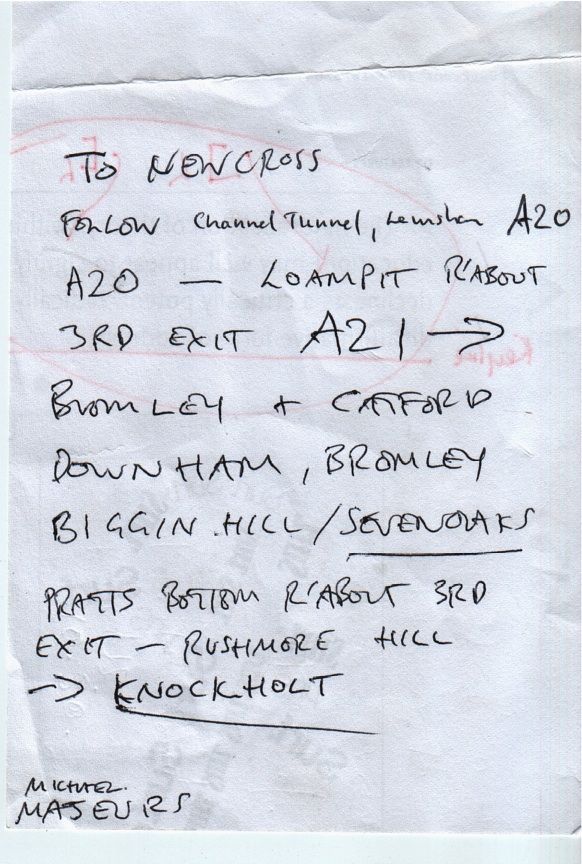 TO NEWCROSS
FOLLOW Channel Tunnel, Lewisham A20
A20 — LOAMPIT R'ABOUT
3RD EXIT A21 →
BROMLEY + CATFORD
DOWNHAM, BROMLEY
BIGGIN HILL / SEVENOAKS
PRATTS BOTTOM R'ABOUT 3RD
EXIT — RUSHMORE HILL
→ KNOCKHOLT
MICHAEL.
MAJEURS